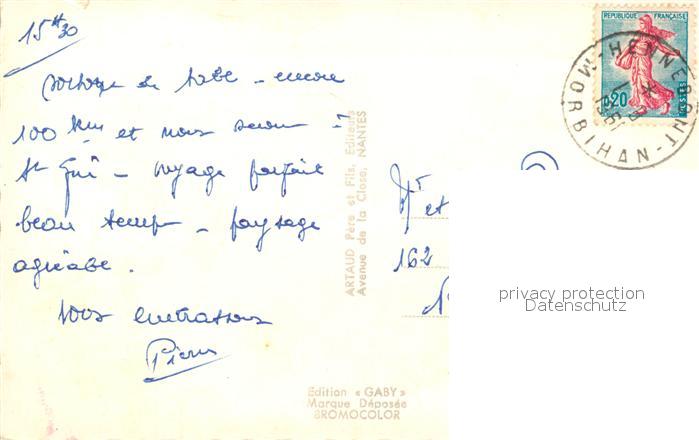 15H30
sortons de table - encore
100 km et nous serons à
St Gué - voyage parfait
beau temps - paysage
agréable.
vous embrassons
Pierre
ARTAUD Père et Fils, Editeurs
Avenue de la Close, NANTES
Edition « GABY »
Marque Déposée
BROMOCOLOR
REPUBLIQUE FRANÇAISE
0,20
POSTES
HENNEBONT
MORBIHAN
1961
Mr et
162
privacy protection
Datenschutz